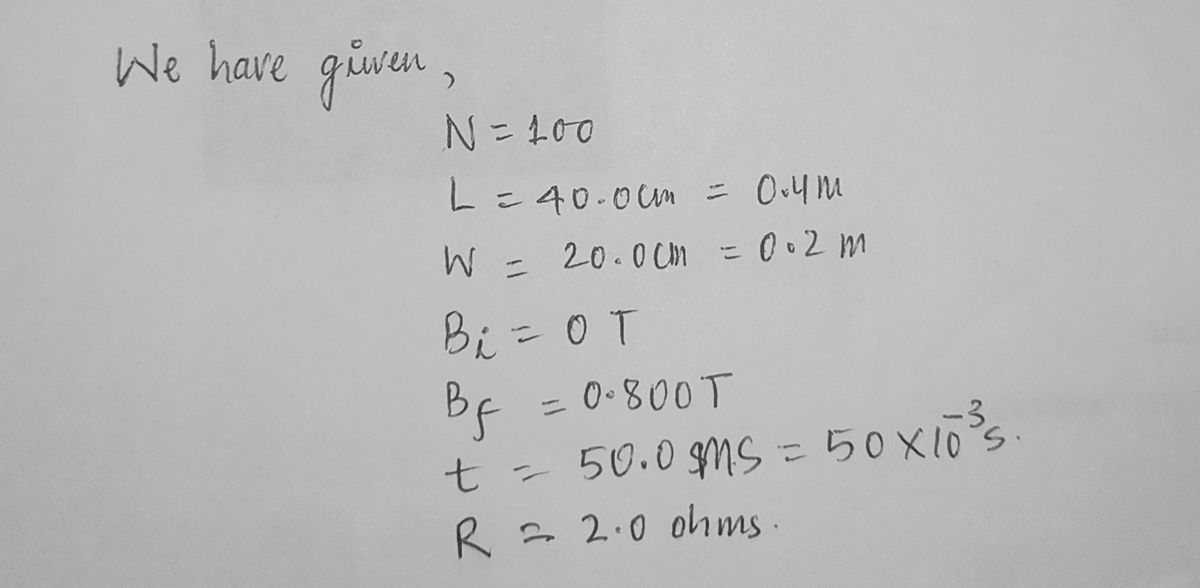 We have given,
N = 100
L = 40.0cm = 0.4m
W = 20.0cm = 0.2 m
Bᵢ = 0 T
B_f = 0.800T
t = 50.0 ms = 50 × 10⁻³s.
R = 2.0 ohms.